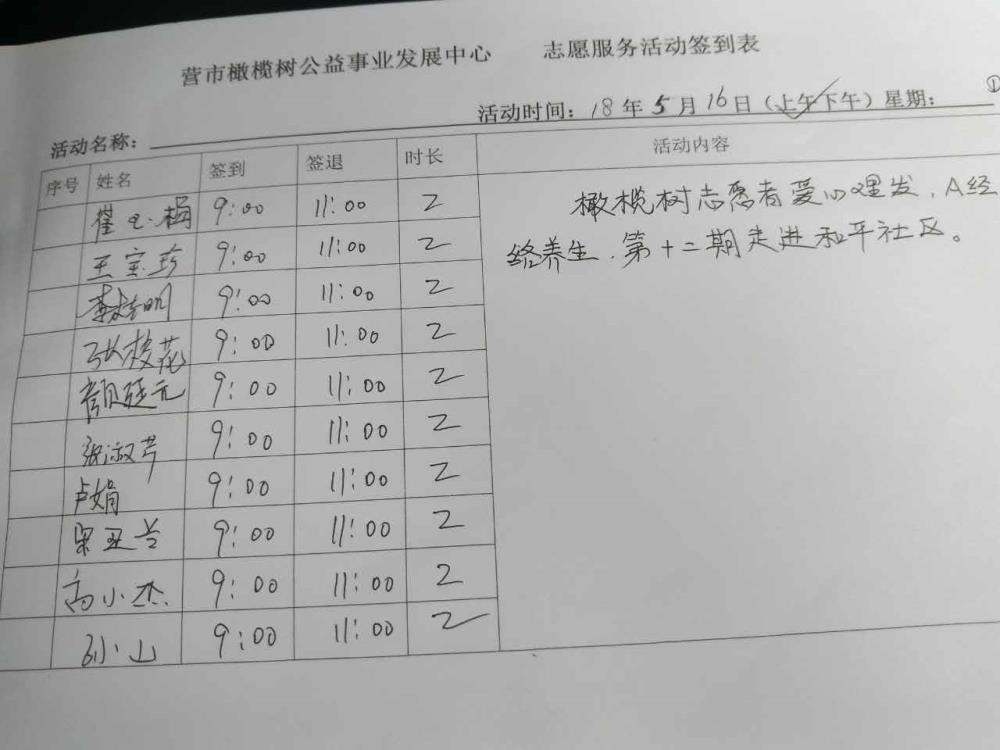 营市橄榄树公益事业发展中心 志愿服务活动签到表
活动时间：18年5月16日（上午下午）星期： ①
活动名称：
序号 姓名 签到 签退 时长 活动内容
9:00 11:00 2
王宝珍 9:00 11:00 2
9:00 11:00 2
张桂花 9:00 11:00 2
颜廷元 9:00 11:00 2
张淑芹 9:00 11:00 2
卢娟 9:00 11:00 2
9:00 11:00 2
高小杰 9:00 11:00 2
孙山 9:00 11:00 2
橄榄树志愿者爱心理发，A经
络养生，第十二期走进和平社区。